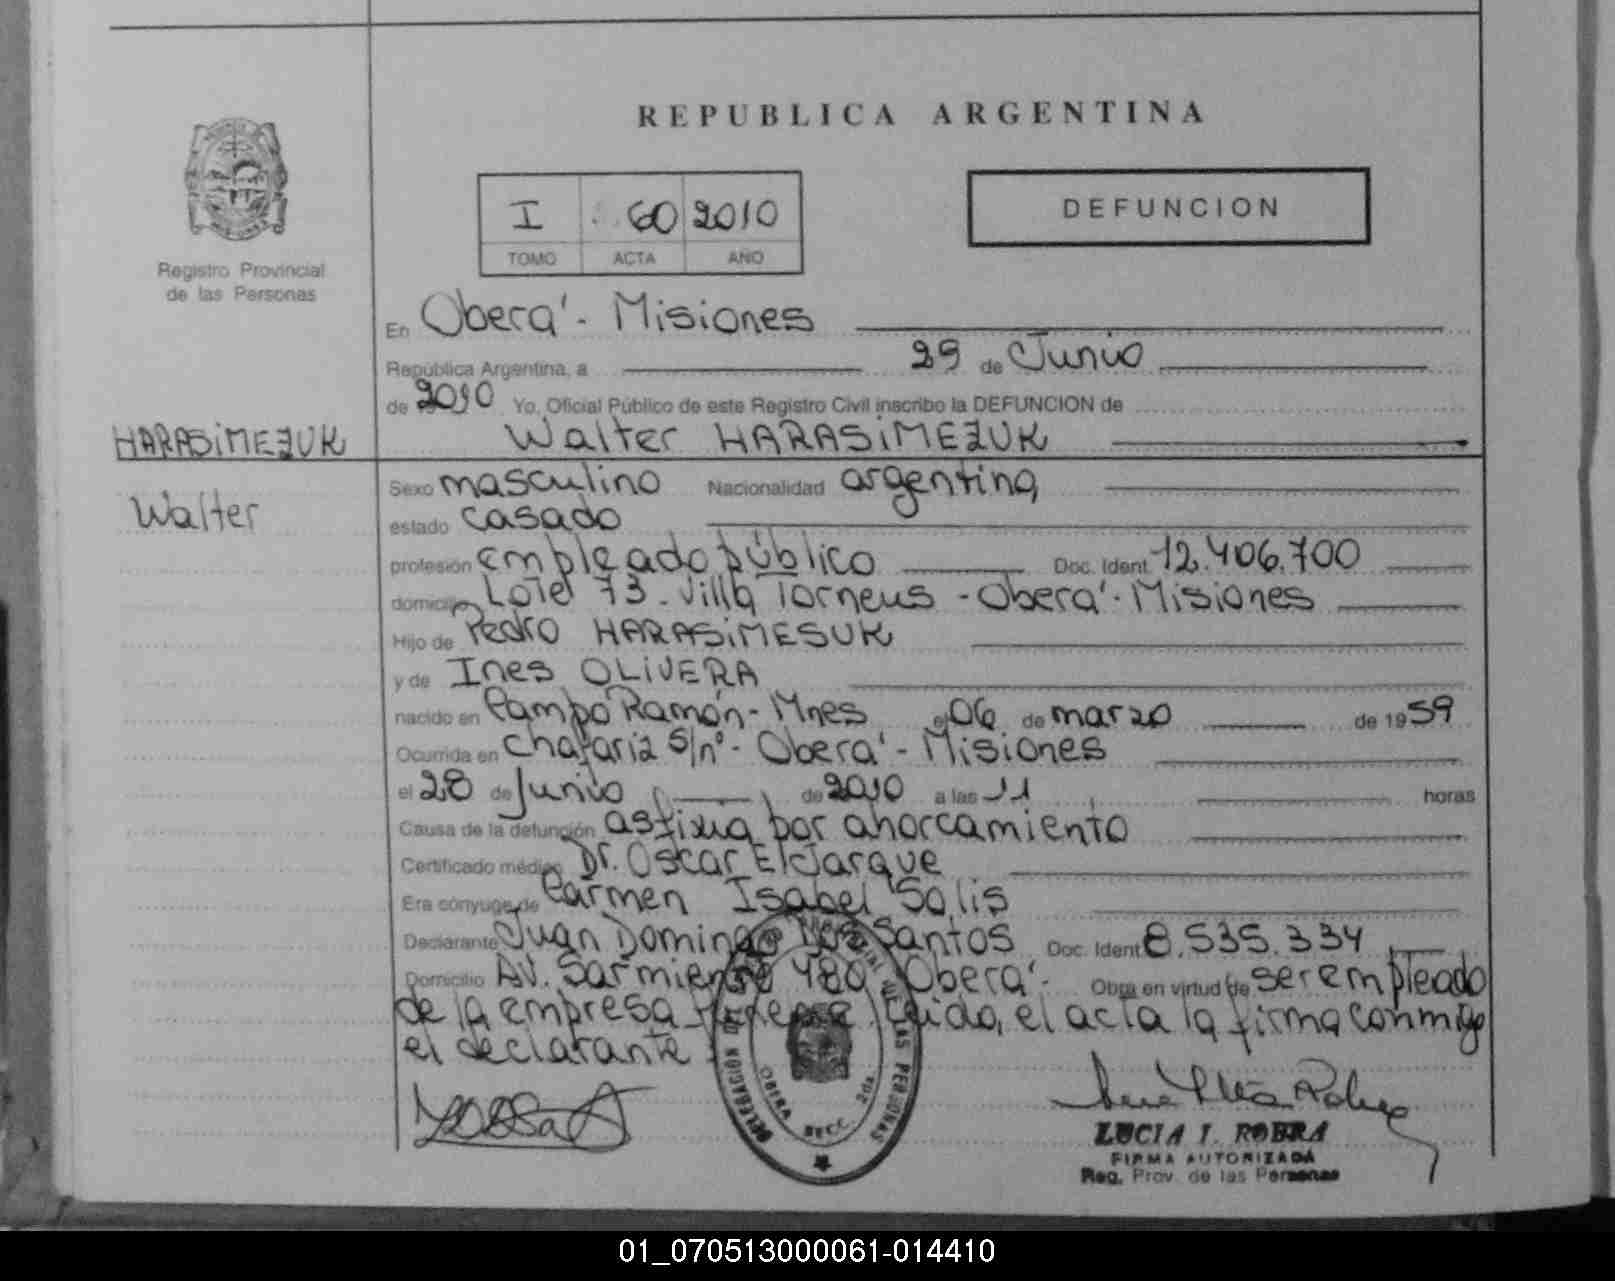 REPUBLICA ARGENTINA
I 60 2010
TOMO ACTA AÑO
DEFUNCION
Registro Provincial
de las Personas
En Oberá - Misiones
República Argentina, a 29 de Junio
de 2010 Yo, Oficial Público de este Registro Civil inscribo la DEFUNCION de
HARASiMEZUK
Walter HARASiMEZUK
Walter
Sexo masculino Nacionalidad argentina
estado casado
profesión empleado público Doc. Ident. 12.406.700
domicilio Lote 73 - Villa Torneus - Oberá - Misiones
Hijo de Pedro HARASiMESUK
y de Ines OLiVERA
nacido en Campo Ramón - Mnes el 06 de marzo de 1959
Ocurrida en chafariz S/nº - Oberá - Misiones
el 28 de Junio de 2010 a las 11 horas
Causa de la defunción asfixia por ahorcamiento
Certificado médico Dr. Oscar ElJarque
Era cónyuge de Carmen Isabel Solis
Declarante Juan Domingo Dos Santos Doc. Ident 8.535.334
Domicilio AV. Sarmiento 480 Oberá - Obra en virtud de ser empleado
de la empresa Leido, el acta la firma conmigo
el declarante
DELEGACION PROVINCIAL DE LAS PERSONAS
OBERA SECC. 2da.
LUCIA I. ROBRA
FIRMA AUTORIZADA
Reg. Prov. de las Personas
01_070513000061-014410